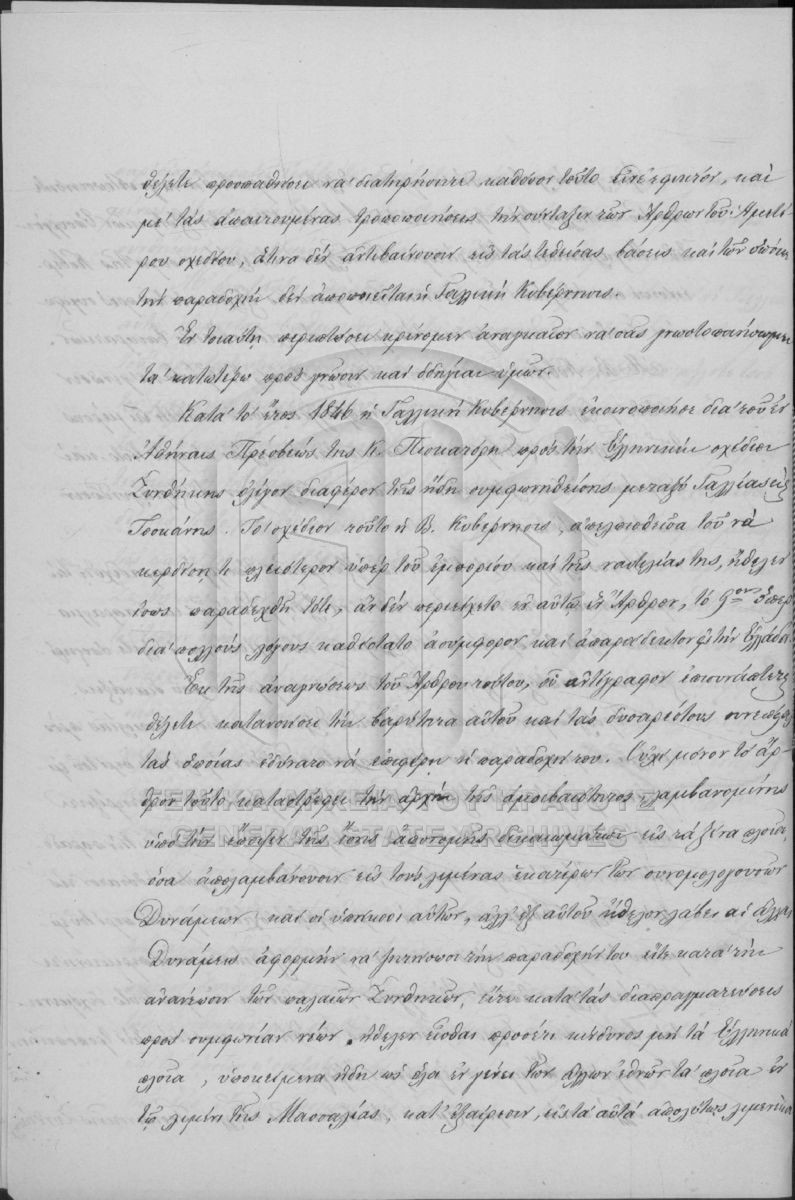 θέλετε προσπαθήσει νὰ διατηρήσητε, καθόσον τοῦτο εἶνε ἐφικτόν, καὶ
μὲ τὰς ἀπαιτουμένας τροποποιήσεις τὴν σύνταξιν τῶν Ἄρθρων τοῦ Ἡμετέ-
ρου σχεδίου, ἅτινα δὲν ἀντιβαίνουσιν εἰς τὰς τεθείσας βάσεις καὶ τῶν ὁποίων
τὴν παραδοχὴν δὲν ἀποποιεῖται ἡ Γαλλικὴ Κυβέρνησις.
Ἐν τοιαύτῃ περιπτώσει κρίνομεν ἀναγκαῖον νὰ σᾶς γνωστοποιήσωμεν
τὰ κατωτέρω πρὸς γνῶσιν καὶ ὁδηγίαν ὑμῶν.
Κατὰ τὸ ἔτος 1846 ἡ Γαλλικὴ Κυβέρνησις ἐκοινοποίησε διὰ τοῦ ἐν
Ἀθήναις Πρέσβεώς της Κ. Πισκατόρη πρὸς τὴν Ἑλληνικὴν σχέδιον
Συνθήκης ὀλίγον διαφέρον τῆς ἤδη συμφωνηθείσης μεταξὺ Γαλλίας καὶ
Τοσκάνης. Τὸ σχέδιον τοῦτο ἡ Β. Κυβέρνησις, ἀπελπισθεῖσα τοῦ νὰ
κερδήσῃ τι πλειότερον ὑπὲρ τοῦ ἐμπορίου καὶ τῆς ναυτιλίας της, ἤθελεν
ἴσως παραδεχθῆ τότε, ἂν δὲν περιείχετο ἐν αὐτῷ ἓν Ἄρθρον, τὸ 9ον ὅπερ
διὰ πολλοὺς λόγους καθίστατο ἀσύμφορον καὶ ἀπαράδεκτον εἰς τὴν Ἑλλάδα.
Ἐκ τῆς ἀναγνώσεως τοῦ Ἄρθρου τούτου, οὗ ἀντίγραφον ἐπισυνάπτεται
θέλετε κατανοήσει τὴν βαρύτητα αὐτοῦ καὶ τὰς δυσαρέστους συνεπείας
τὰς ὁποίας ἐδύνατο νὰ ἐπιφέρῃ ἡ παραδοχή του. Οὐχὶ μόνον τὸ ἄρ-
θρον τοῦτο καταστρέφει τὴν ἀρχὴν τῆς ἀμοιβαιότητος, λαμβανομένης
ὑπὸ τὴν ἔποψιν τῆς ἴσης ἀπονομῆς δικαιωμάτων εἰς τὰ ξένα πλοῖα,
ὅσα ἀπολαμβάνουσιν εἰς τοὺς λιμένας ἑκατέρων τῶν συνομολογουσῶν
Δυνάμεων καὶ οἱ ὑπήκοοι αὐτῶν, ἀλλ' ἐξ αὐτοῦ ἤθελον λάβει αἱ ἄλλαι
Δυνάμεις ἀφορμὴν νὰ ζητήσωσι τὴν παραδοχήν του εἴτε κατὰ τὴν
ἀνανέωσιν τῶν παλαιῶν Συνθηκῶν, εἴτε κατὰ τὰς διαπραγματεύσεις
πρὸς συμφωνίαν νέων. ἤθελεν εἶσθαι προσέτι κίνδυνος μὴ τὰ Ἑλληνικὰ
πλοῖα, ὑποκείμενα ἤδη ὡς ὅλα ἐν γένει τῶν ἄλλων ἐθνῶν τὰ πλοῖα ἐν
τῷ λιμένι τῆς Μασσαλίας, κατ' ἐξαίρεσιν, εἰς τὰ αὐτὰ ἀπολύτως λιμενικὰ
ΓΕΝΙΚΑ ΑΡΧΕΙΑ ΤΟΥ ΚΡΑΤΟΥΣ
GENERAL STATE ARCHIVES